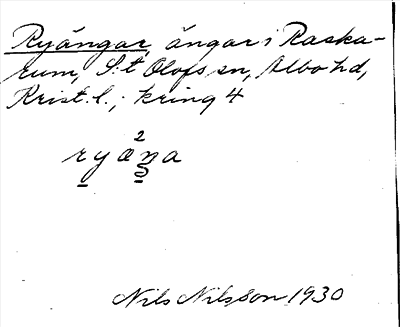 Ryängar, ängar i Raska-
rum, S:t Olofs sn, Albo hd,
Krist. l.; kring 4
2
r y a ŋ a
Nils Nilsson 1930